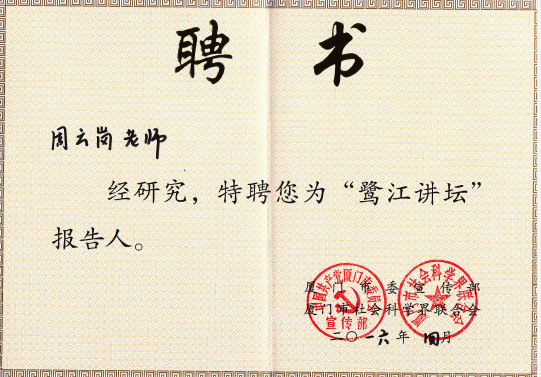 聘 书
周云岗老师
经研究，特聘您为“鹭江讲坛”
报告人。
厦门市委宣传部
厦门市社会科学界联合会
二〇一六年四月
中国共产党厦门市委员会
宣传部
厦门市社会科学界联合会